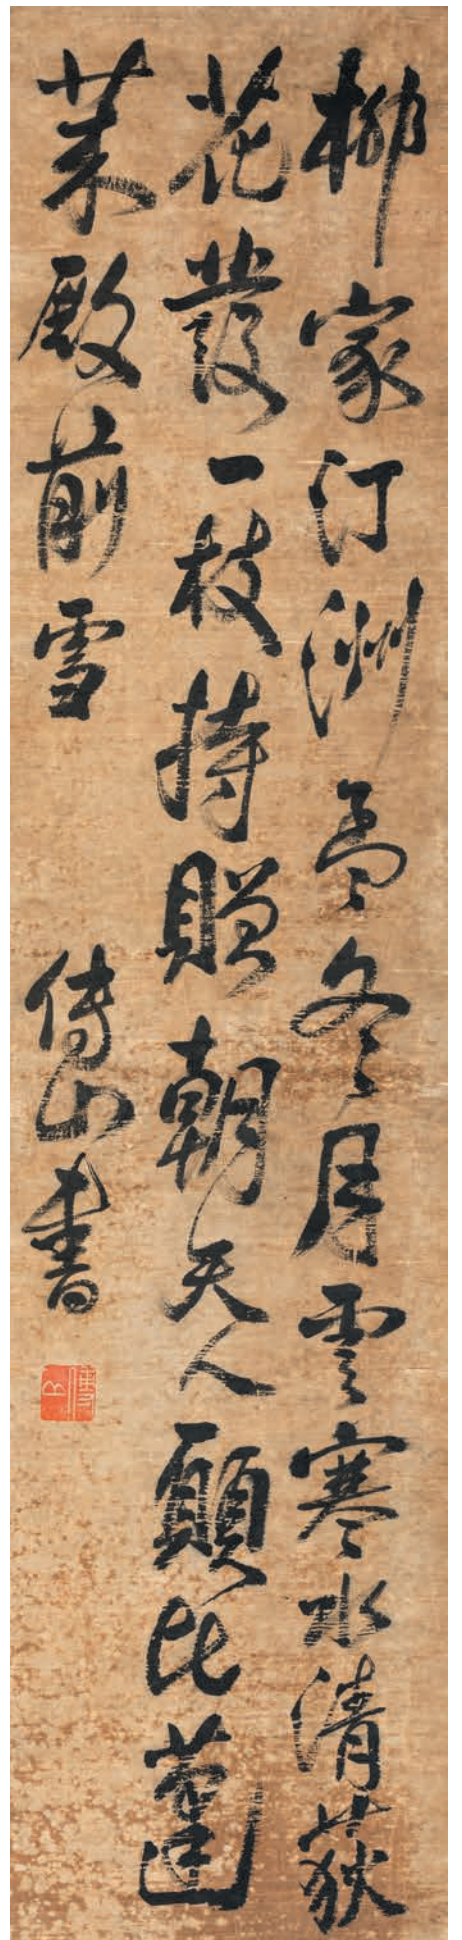 柳家汀洲孟冬月雲寒水清荻
花發一枝持贈朝天人願比蓬
萊殿前雪
傅山書
傅山